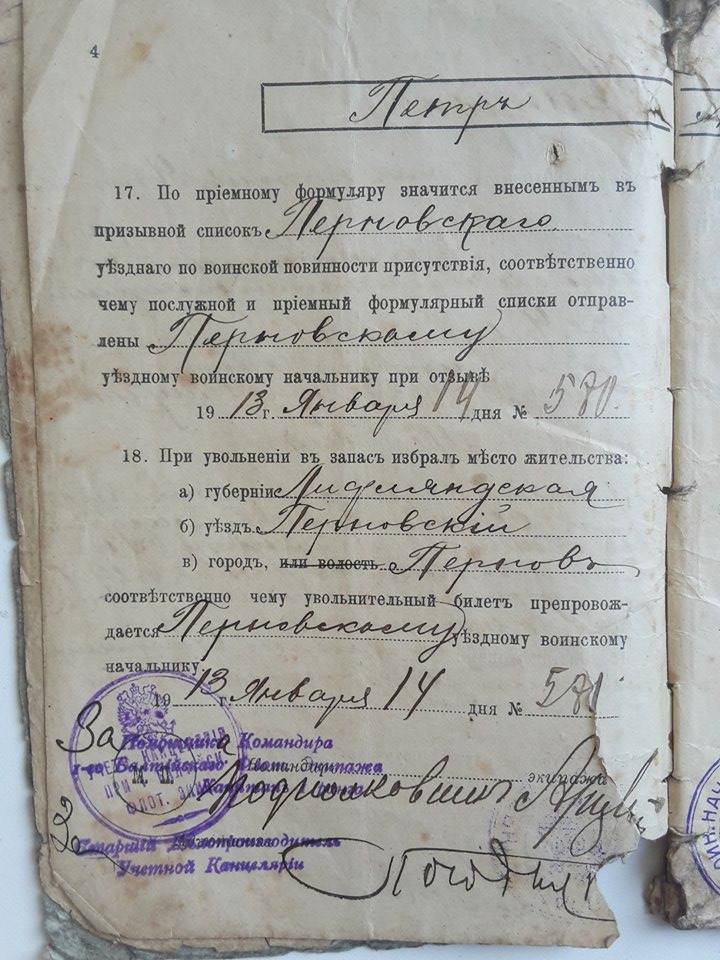 4
Петръ
17. По пріемному формуляру значится внесеннымъ въ
призывной списокъ Перновскаго
уѣзднаго по воинской повинности присутствія, соотвѣтственно
чему послужной и пріемный формулярный списки отправ-
лены Перновскому
уѣздному воинскому начальнику при отзывѣ
19 13 г. Января 14 дня № 580.
18. При увольненіи въ запасъ избралъ мѣсто жительства:
а) губерніи Лифляндская
б) уѣздъ Перновскій
в) городъ, или волость Перновъ
соотвѣтственно чему увольнительный билетъ препровож-
дается Перновскому уѣздному воинскому
начальнику
19 13 г. Января 14 дня № 580
За Помощника Командира
1-го Балтійскаго экипажа
Командиръ экипажа
Подполковникъ
Старшій Дѣлопроизводитель
Учетной Канцеляріи